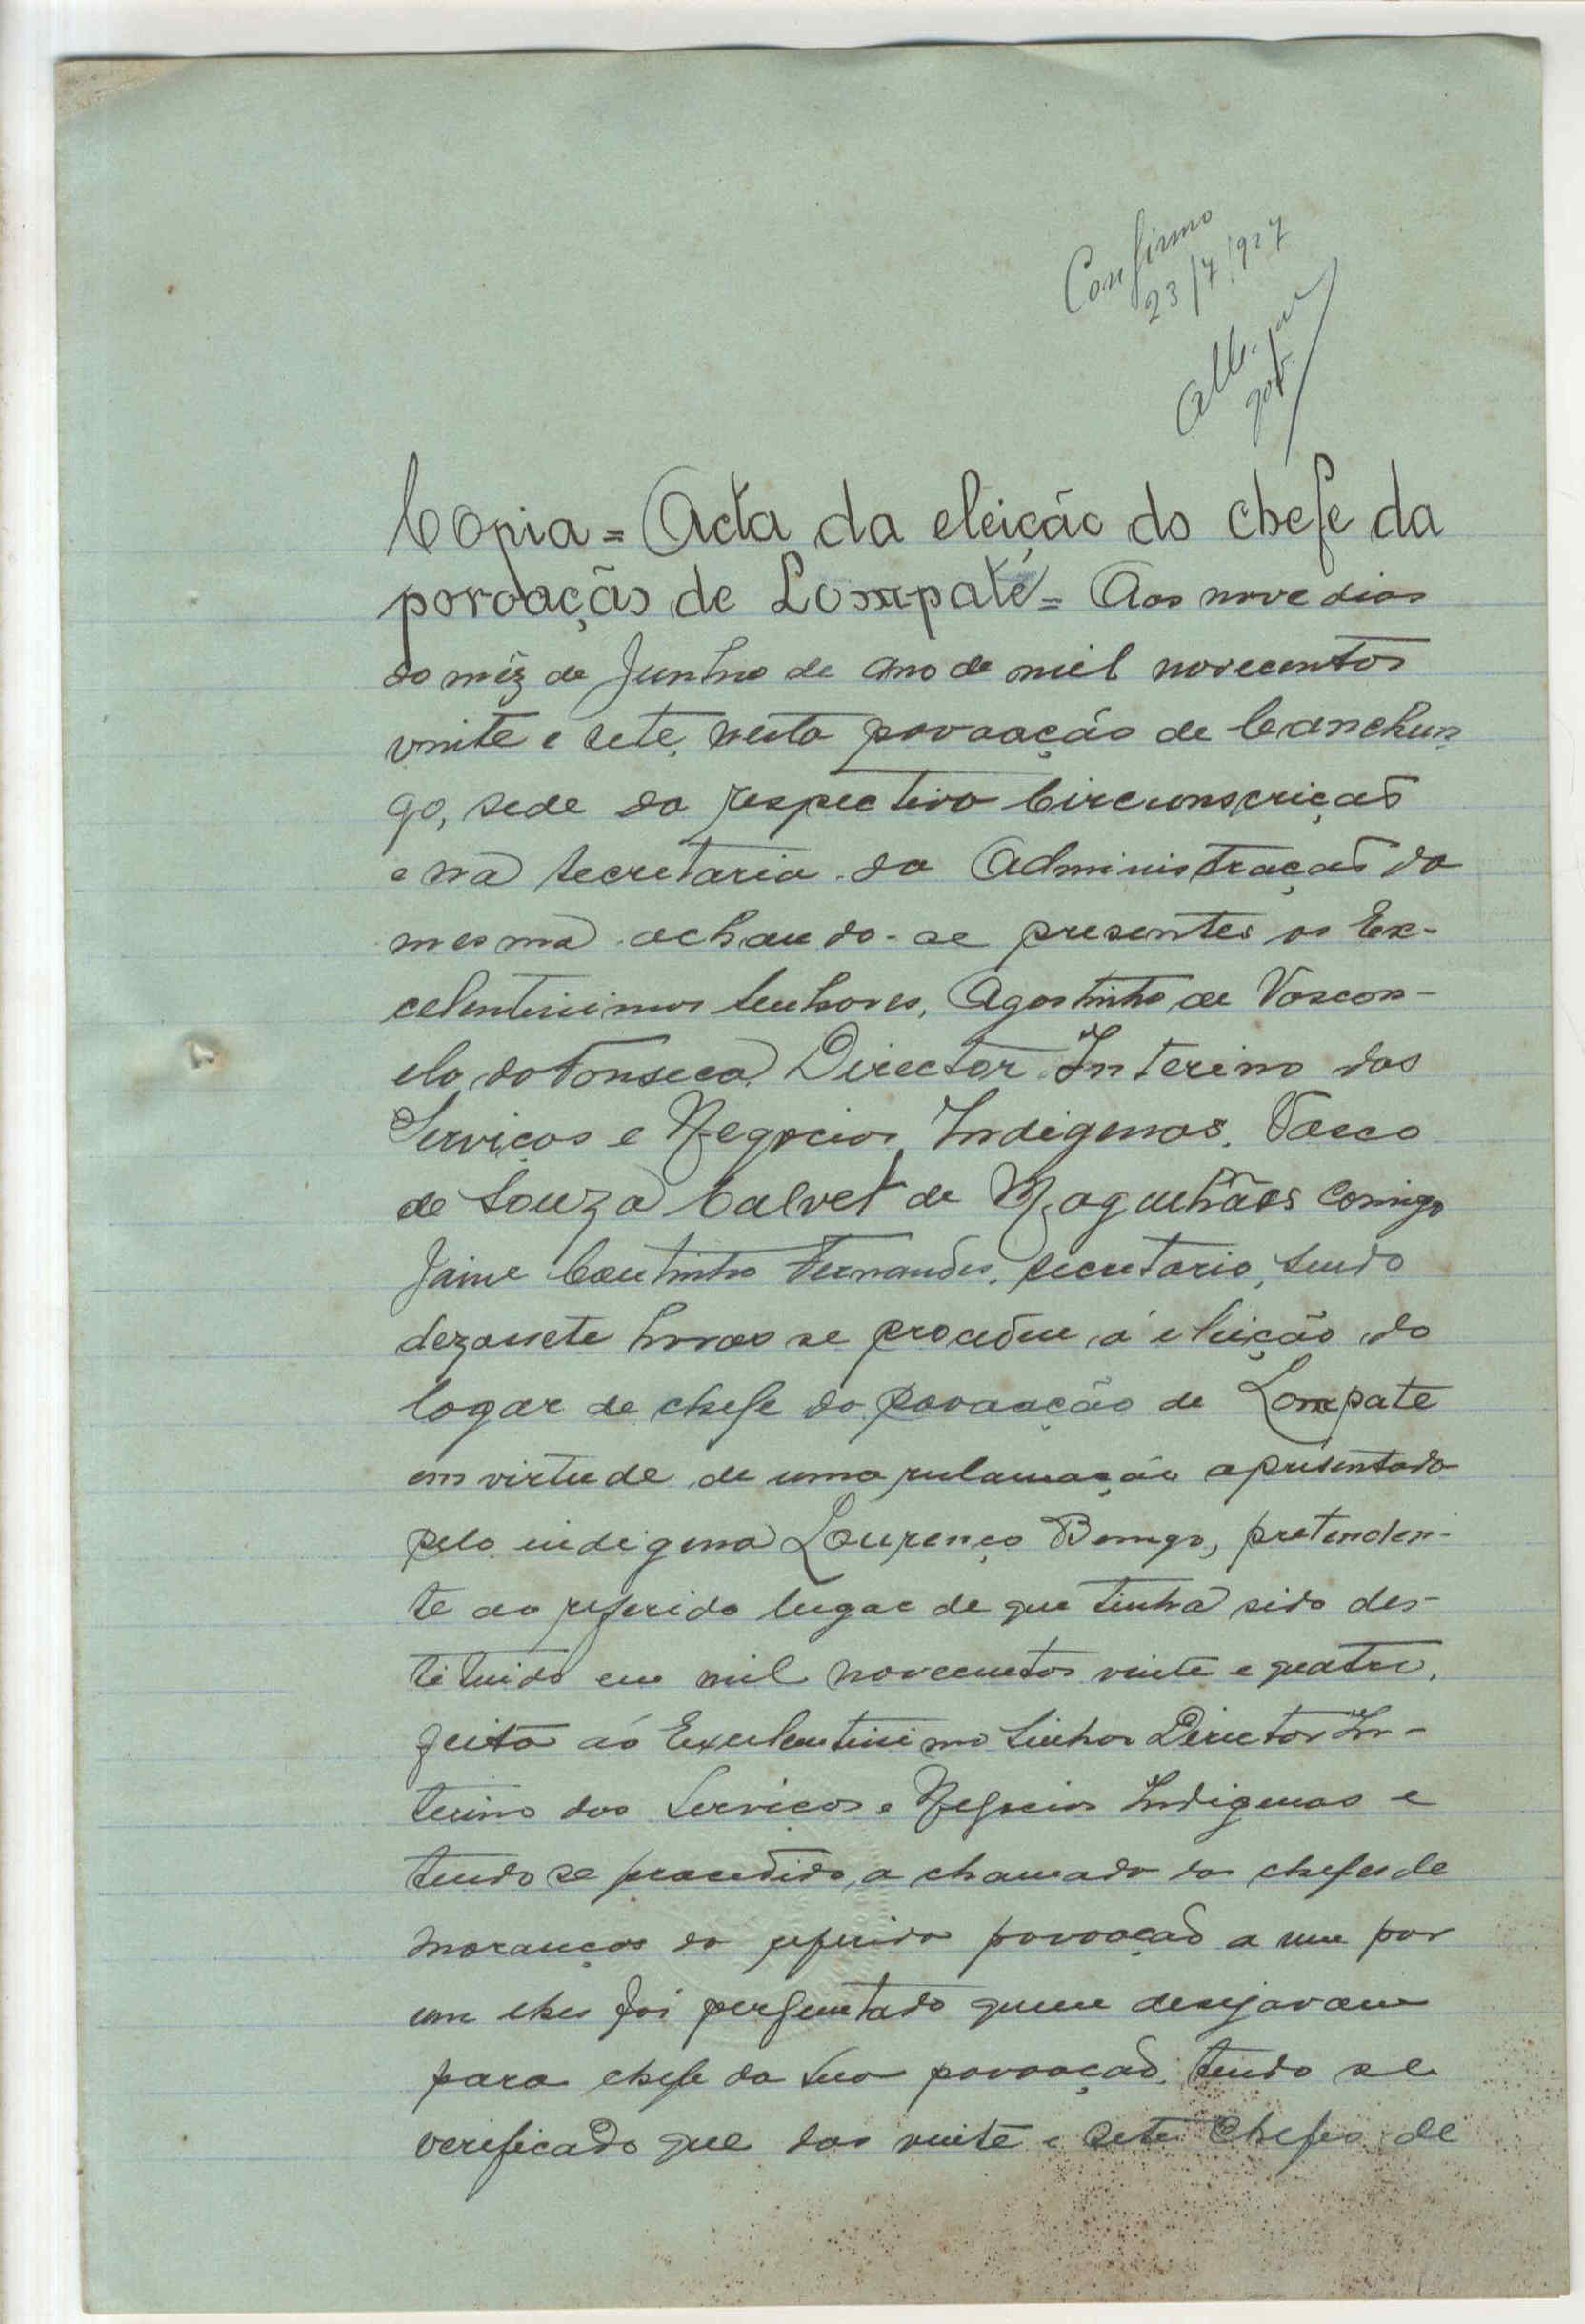 Confirmo
23/7/927
gov.
Copia = Acta da eleição do chefe da
povoação de Lompaté = Aos nove dias
do mêz de Junho de ano de mil novecentos
vinte e sete, nesta povoação de Canchun
go, séde da respectiva Circunscrição
e na secretaria da Administração da
mesma achando-se presentes os Ex-
celentissimos Senhores, Agostinho de Vascon-
elo da Fonseca, Director Interino dos
Serviços e Negocios Indigenas, Vasco
de Souza Calvet de Magalhães comigo
Jaime Coutinho Fernandes, secretario, sendo
dezassete horas se procedeu á eleição do
logar de chefe da povoação de Lompate
em virtude de uma reclamação apresentada
pelo indigena Lourenço Bomgo, pretenden-
te ao referido lugar de que tinha sido des-
tituido em mil novecentos vinte e quatro,
feita ao Excelentissimo Senhor Director In-
terino dos Serviços e Negocios Indigenas e
tendo se procedido a chamada dos chefes de
moranças da referida povoação a um por
um lhes foi perguntado quem desejavam
para chefe da sua povoação, tendo se
verificado que dos vinte e sete chefes de